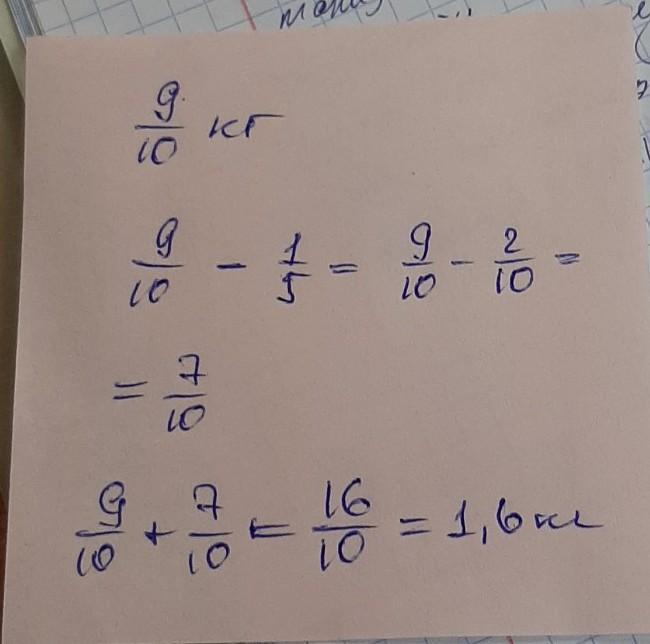 9/10 кг
9/10 - 1/5 = 9/10 - 2/10 =
= 7/10
9/10 + 7/10 = 16/10 = 1,6 кг